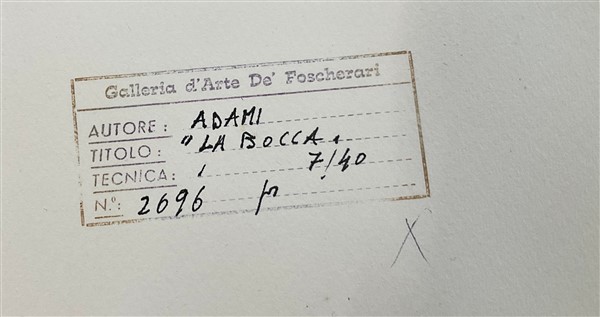 Galleria d'Arte De' Foscherari
AUTORE: ADAMI
TITOLO: "LA BOCCA"
TECNICA: 7/40
N.º: 2696
X